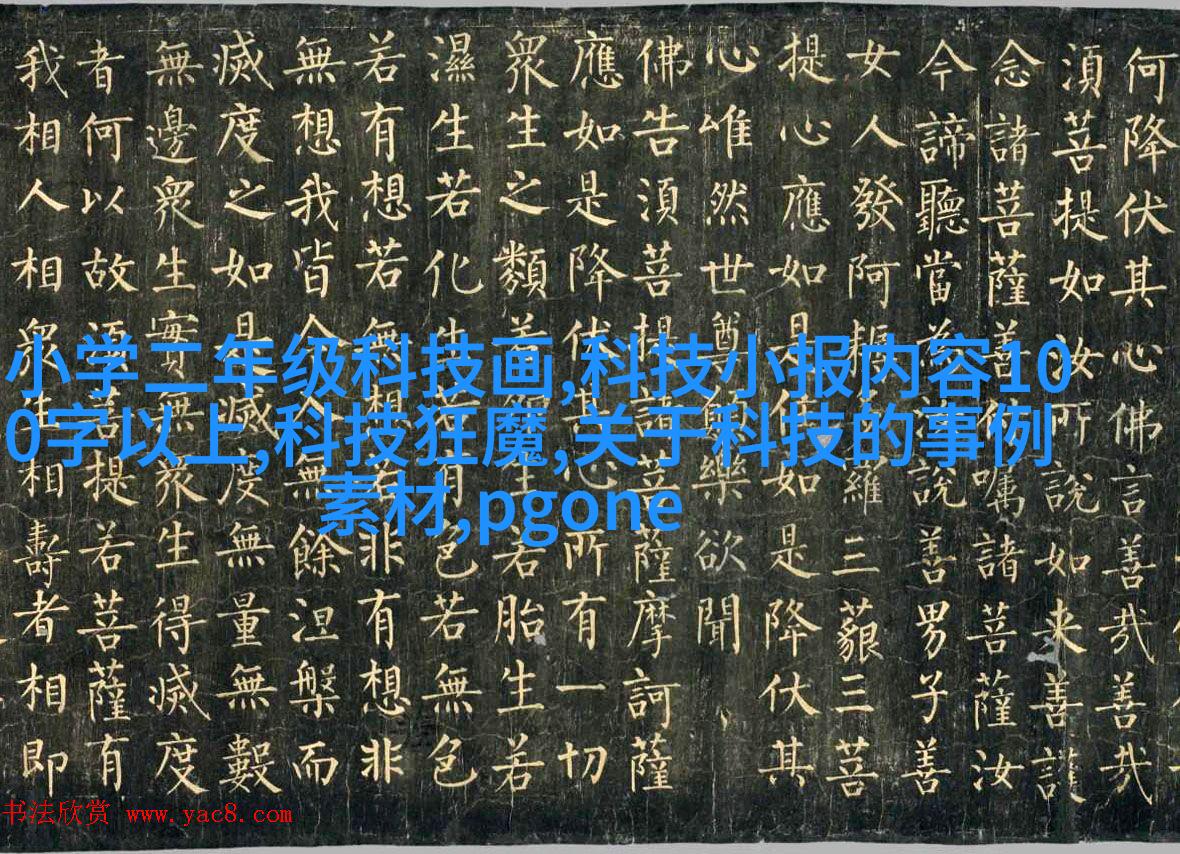 何降伏其心佛言善哉善哉
須菩提如汝所說如来善護
念諸菩薩善付囑諸菩薩汝
今諦聽當為汝說善男子善
女人發阿耨多羅三藐三菩
提心應如是住如是降伏其
心唯然世尊願樂欲聞
佛告須菩提諸菩薩摩訶薩
應如是降伏其心所有一切
衆生之類若卵生若胎生若
濕生若化生若有色若無色
若有想若無想若非有想非
無想我皆令入無餘涅槃而
滅度之如是滅度無量無數
無邊衆生實無衆生得滅度
者何以故須菩提若菩薩有
我相人相衆生相壽者相即
小学二年级科技画,科技小报内容10
0字以上,科技狂魔,关于科技的事例
素材,pgone
书法欣赏 www.yac8.com